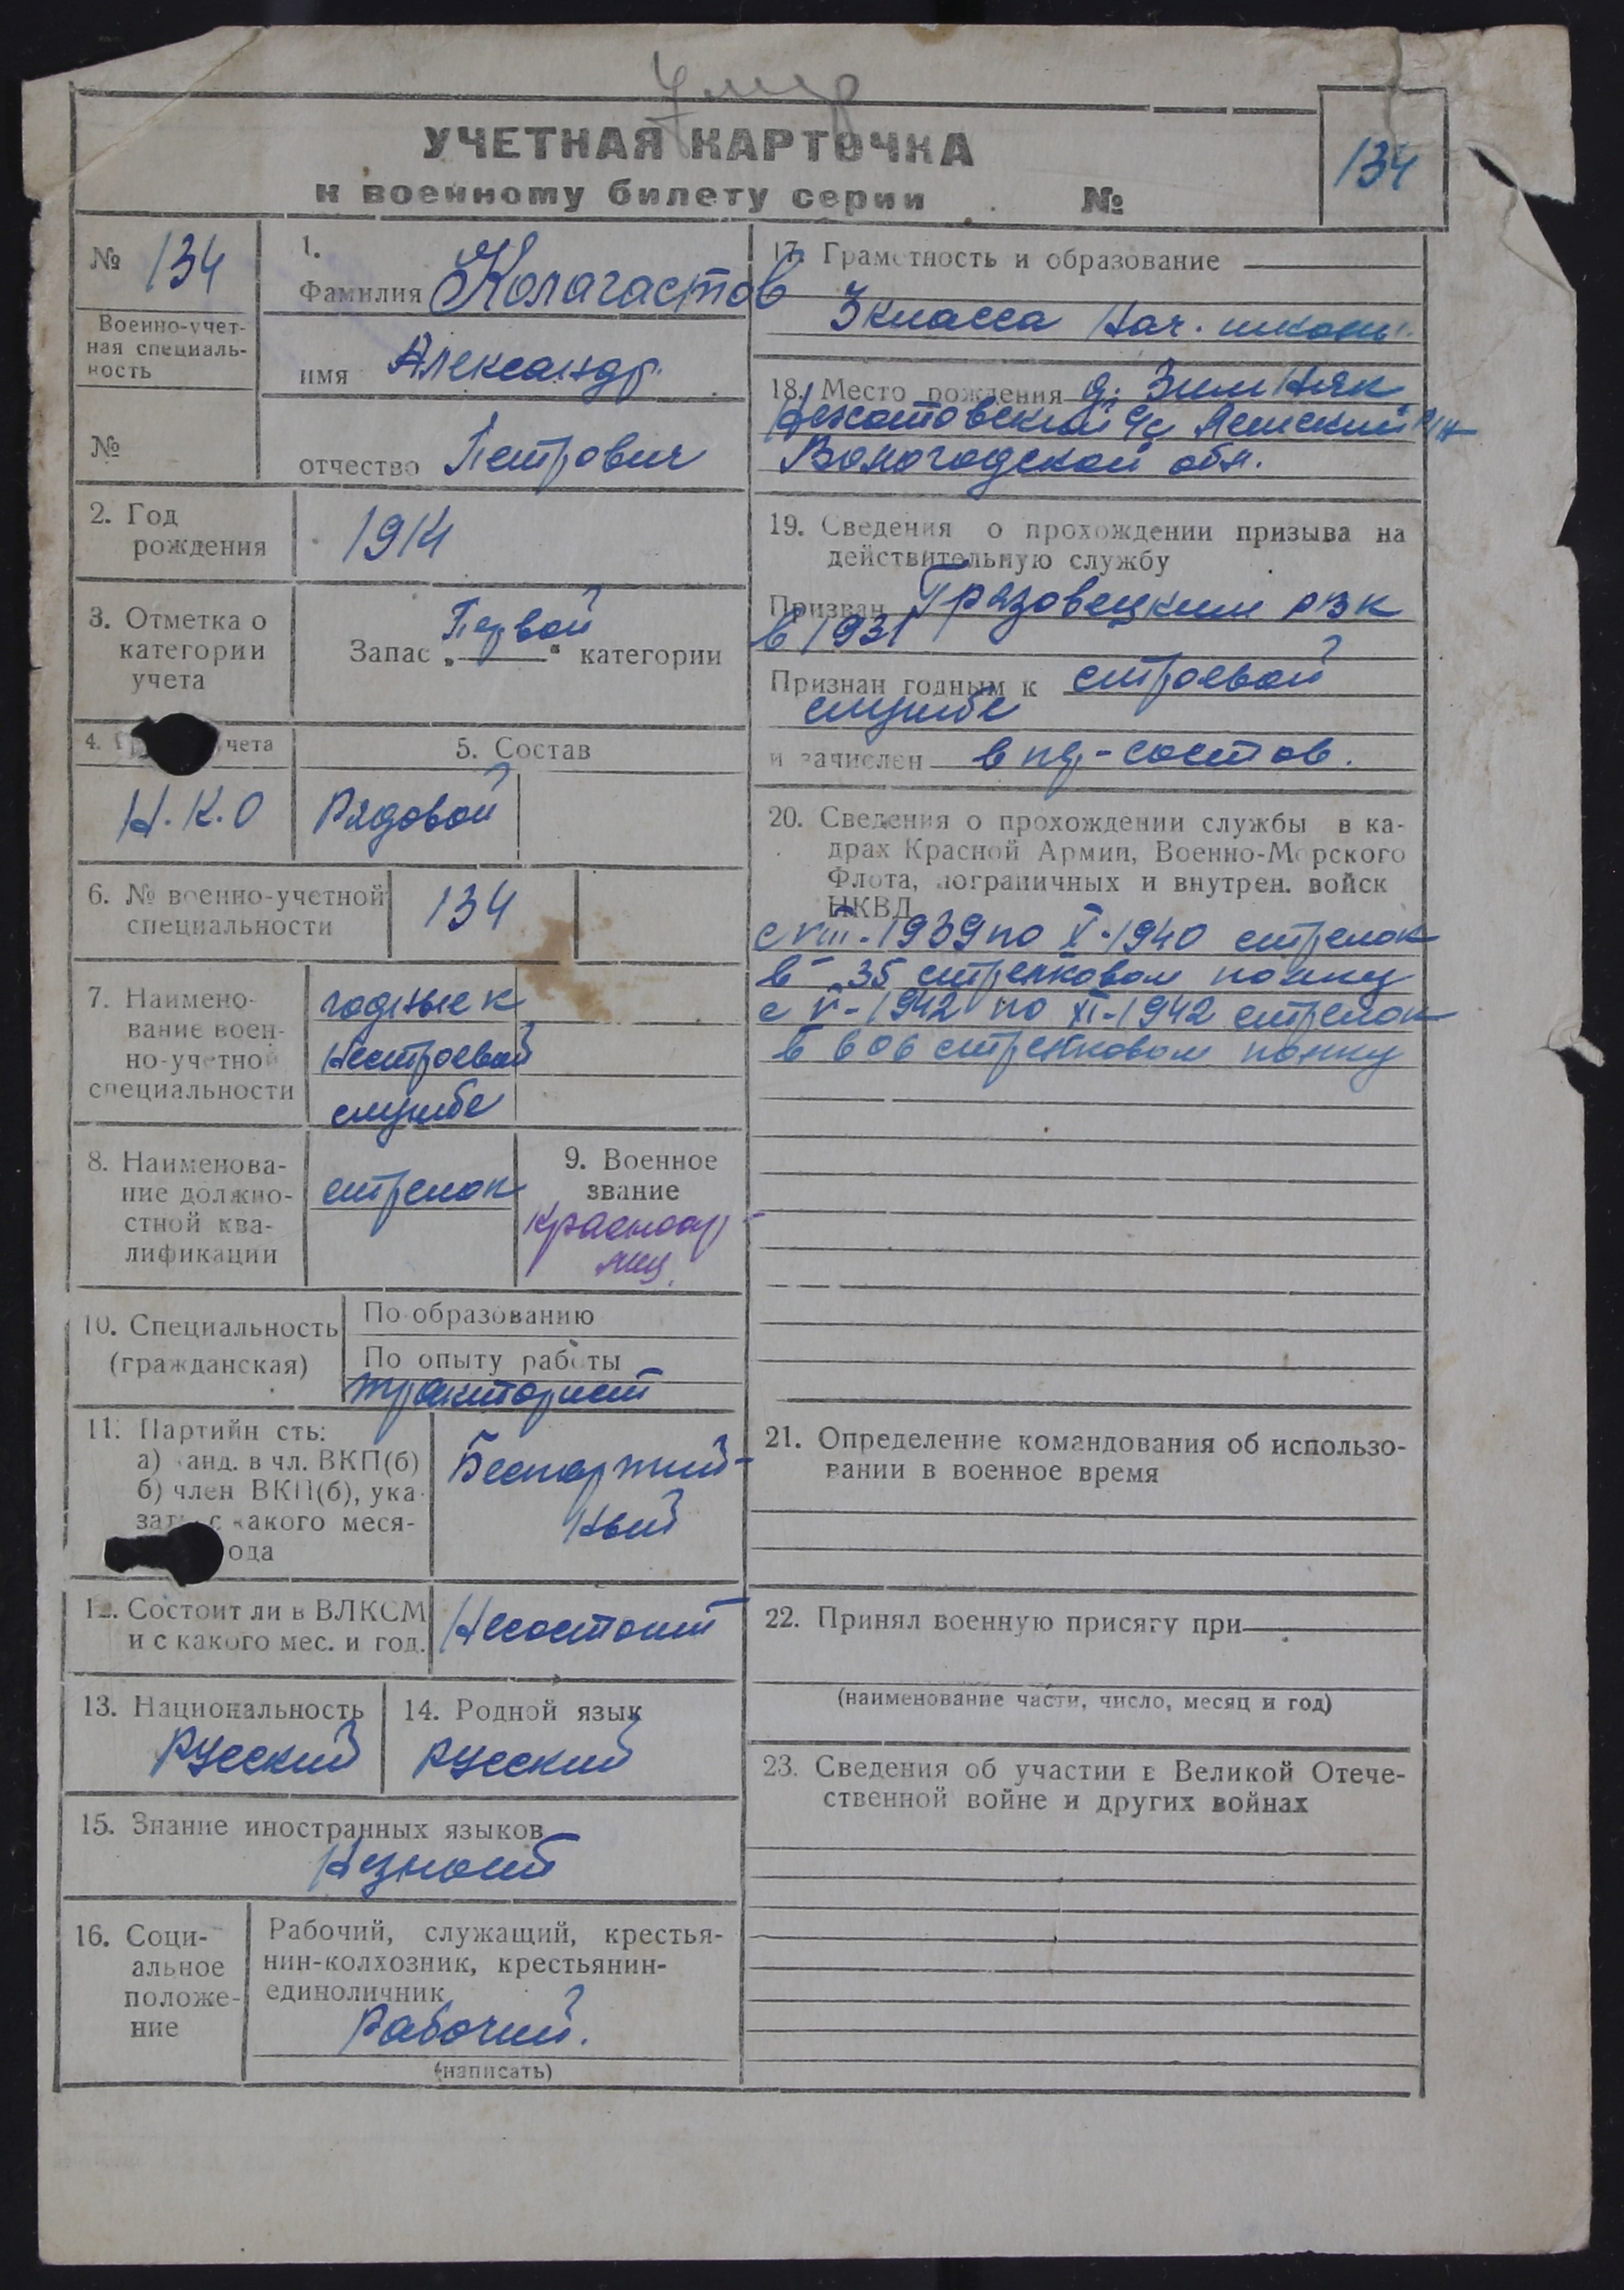 Умер
УЧЕТНАЯ КАРТОЧКА
к военному билету серии №
134
№ 134
Военно-учет-
ная специаль-
ность
№
1.
Фамилия Колагастов
имя Александр
отчество Петрович
2. Год
рождения
1914
3. Отметка о
категории
учета
Запас „Первой“ категории
4. чета
Н.К.О
5. Состав
Рядовой
6. № военно-учетной
специальности
134
7. Наимено-
вание воен-
но-учетной
специальности
годные к
нестроевой
службе
8. Наименова-
ние должно-
стной ква-
лификации
стрелок
9. Военное
звание
красноар-
меец
10. Специальность
(гражданская)
По образованию
По опыту работы
тракторист
11. Партийн сть:
а) канд. в чл. ВКП(б)
б) член ВКП(б), ука-
зать с какого меся-
ода
Беспартий-
ный
12. Состоит ли в ВЛКСМ
и с какого мес. и год.
Несостоит
13. Национальность
Русский
14. Родной язык
Русский
15. Знание иностранных языков
Незнает
16. Соци-
альное
положе-
ние
Рабочий, служащий, крестья-
нин-колхозник, крестьянин-
единоличник
Рабочий.
(написать)
17. Грамотность и образование
3 класса Нач. школы.
18. Место рождения д. Зимняк
с/с р/н
Вологодской обл.
19. Сведения о прохождении призыва на
действительную службу
Призван Грязовецким РВК
в 1931
Признан годным к строевой
службе
и зачислен в - состав.
20. Сведения о прохождении службы в ка-
драх Красной Армии, Военно-Морского
Флота, пограничных и внутрен. войск
НКВД
с VIII-1939 по X-1940 стрелок
в 35 стрелковом полку
с V-1942 по XI-1942 стрелок
в 606 стрелковом полку
21. Определение командования об использо-
вании в военное время
22. Принял военную присягу при
(наименование части, число, месяц и год)
23. Сведения об участии в Великой Отече-
ственной войне и других войнах